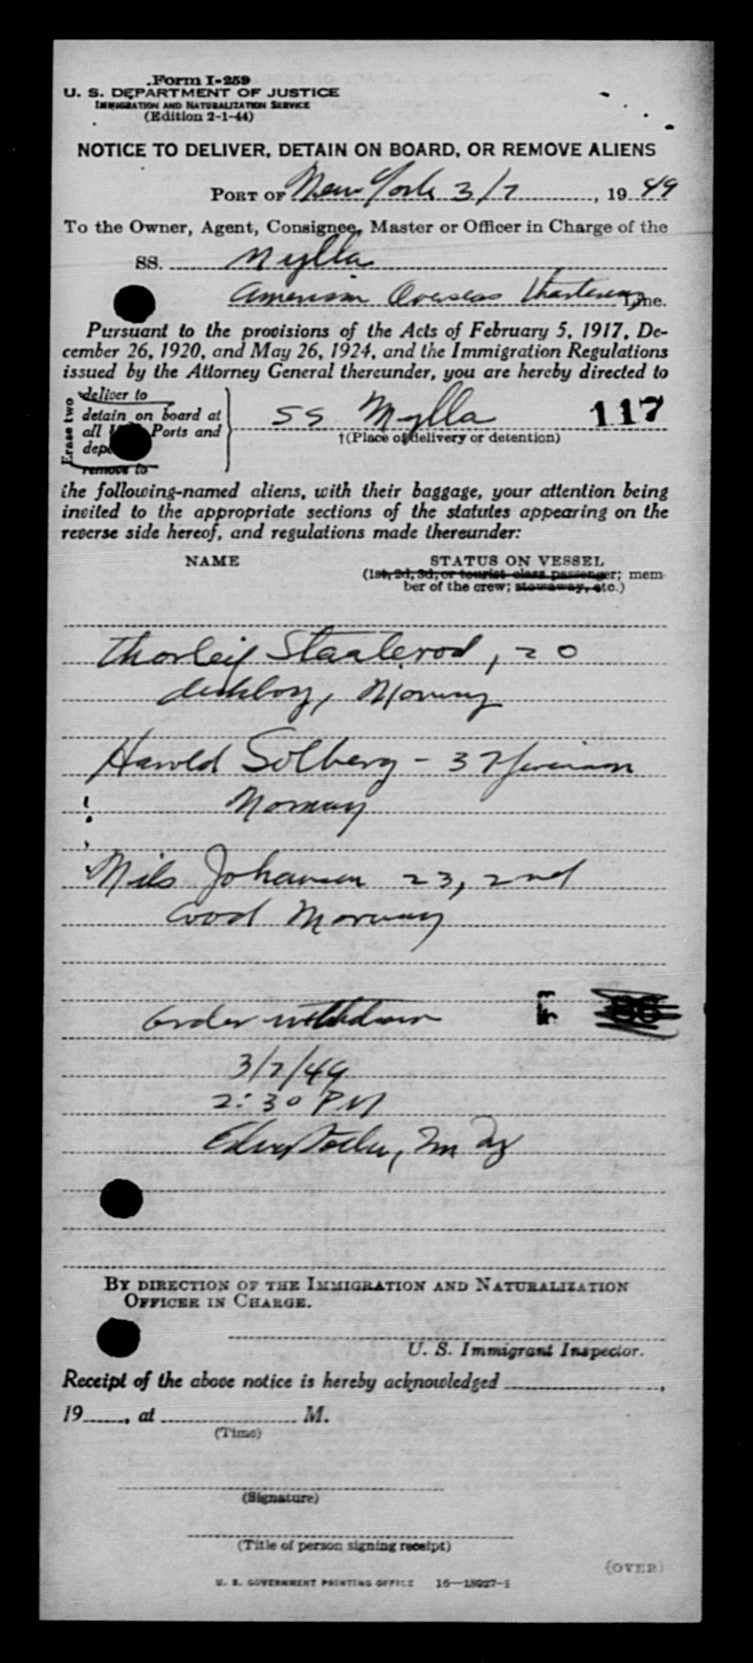 Form I-259
U. S. DEPARTMENT OF JUSTICE
IMMIGRATION AND NATURALIZATION SERVICE
(Edition 2-1-44)
NOTICE TO DELIVER, DETAIN ON BOARD, OR REMOVE ALIENS
PORT OF New York 3/7, 1949
To the Owner, Agent, Consignee, Master or Officer in Charge of the
SS. Mylla
American Overseas Chartering Line.
Pursuant to the provisions of the Acts of February 5, 1917, De-
cember 26, 1920, and May 26, 1924, and the Immigration Regulations
issued by the Attorney General thereunder, you are hereby directed to
Erase two
deliver to
detain on board at
all Ports and
remove to
SS Mylla 117
†(Place of delivery or detention)
the following-named aliens, with their baggage, your attention being
invited to the appropriate sections of the statutes appearing on the
reverse side hereof, and regulations made thereunder:
NAME STATUS ON VESSEL
(1st, 2d, 3d, or tourist class passenger; mem-
ber of the crew; stowaway, etc.)
Thorleif Staalerod, 20
deckboy, Norway
Harold Solberg - 37 fireman
Norway
Nils Johansen 23, 2nd
cook Norway
Order withdrawn F 86
3/7/49
2:30 PM
BY DIRECTION OF THE IMMIGRATION AND NATURALIZATION
OFFICER IN CHARGE.
U. S. Immigrant Inspector.
Receipt of the above notice is hereby acknowledged ,
19 , at M.
(Time)
(Signature)
(Title of person signing receipt)
(OVER)
U. S. GOVERNMENT PRINTING OFFICE 16—18027-1